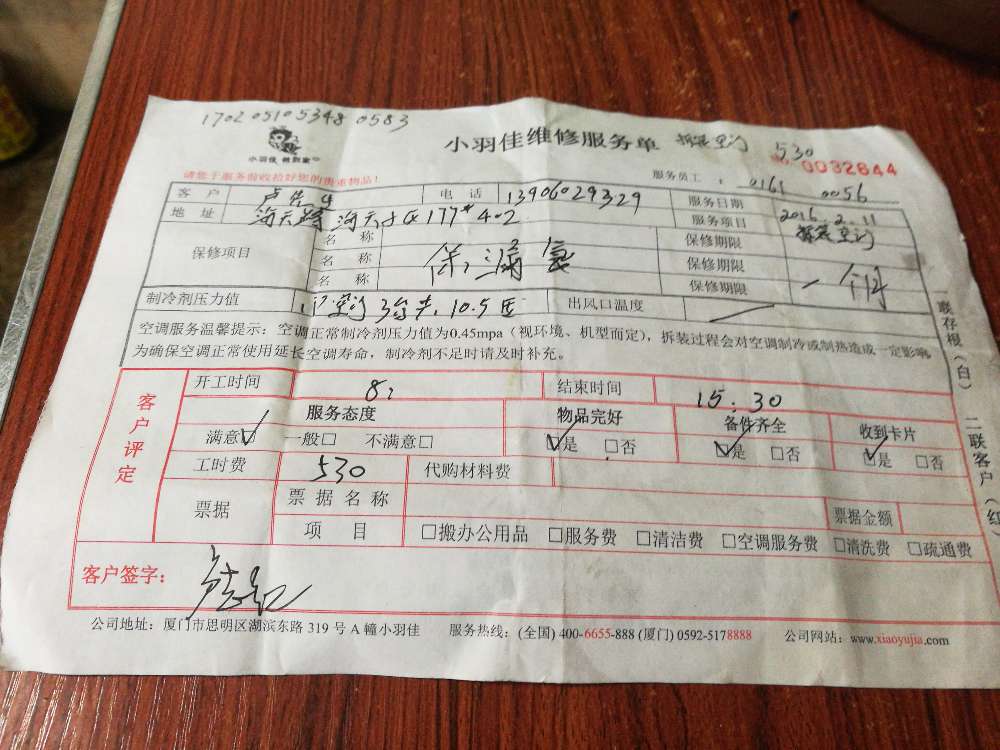 170205105348 0583
小羽佳维修服务单 拆装空调 530
小羽佳 微到家
No 0032644
请您于服务前收拾好您的贵重物品!
服务员工: 0161 0056
客户 卢先生 电话 13906029329 服务日期 2016.2.11
地址 海天路 177# 402 服务项目 拆装空调
保修项目 名称 保修期限
名称 保修期限
名称 保修期限 一个月
保 漏氟
制冷剂压力值 10.5 出风口温度 —
空调服务温馨提示:空调正常制冷剂压力值为0.45mpa(视环境、机型而定),拆装过程会对空调制冷或制热造成一定影响
为确保空调正常使用延长空调寿命,制冷剂不足时请及时补充。
客户评定
开工时间 8: 结束时间 15:30
服务态度 物品完好 备件齐全 收到卡片
满意☑ 一般□ 不满意□ ☑是 □否 ☑是 □否 ☑是 □否
工时费 530 代购材料费
票据 票据名称 票据金额
项目 □搬办公用品 □服务费 □清洁费 □空调服务费 □清洗费 □疏通费
客户签字:
公司地址:厦门市思明区湖滨东路 319 号 A 幢小羽佳 服务热线:(全国) 400-6655-888 (厦门) 0592-5178888 公司网站:www.xiaoyujia.com
一联存根(白) 二联客户(红)